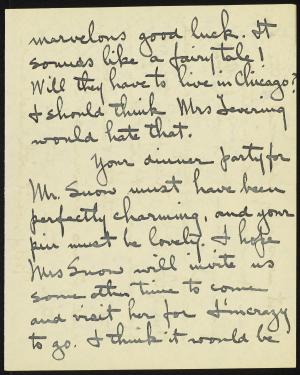 marvelous good luck. It
sounds like a fairy tale!
Will they have to live in Chicago?
I should think Mrs Levering
would hate that.
Your dinner party for
Mr. Snow must have been
perfectly charming, and your
pin must be lovely. I hope
Mrs Snow will invite us
some other time to come
and visit her for I'm crazy
to go. I think it would be